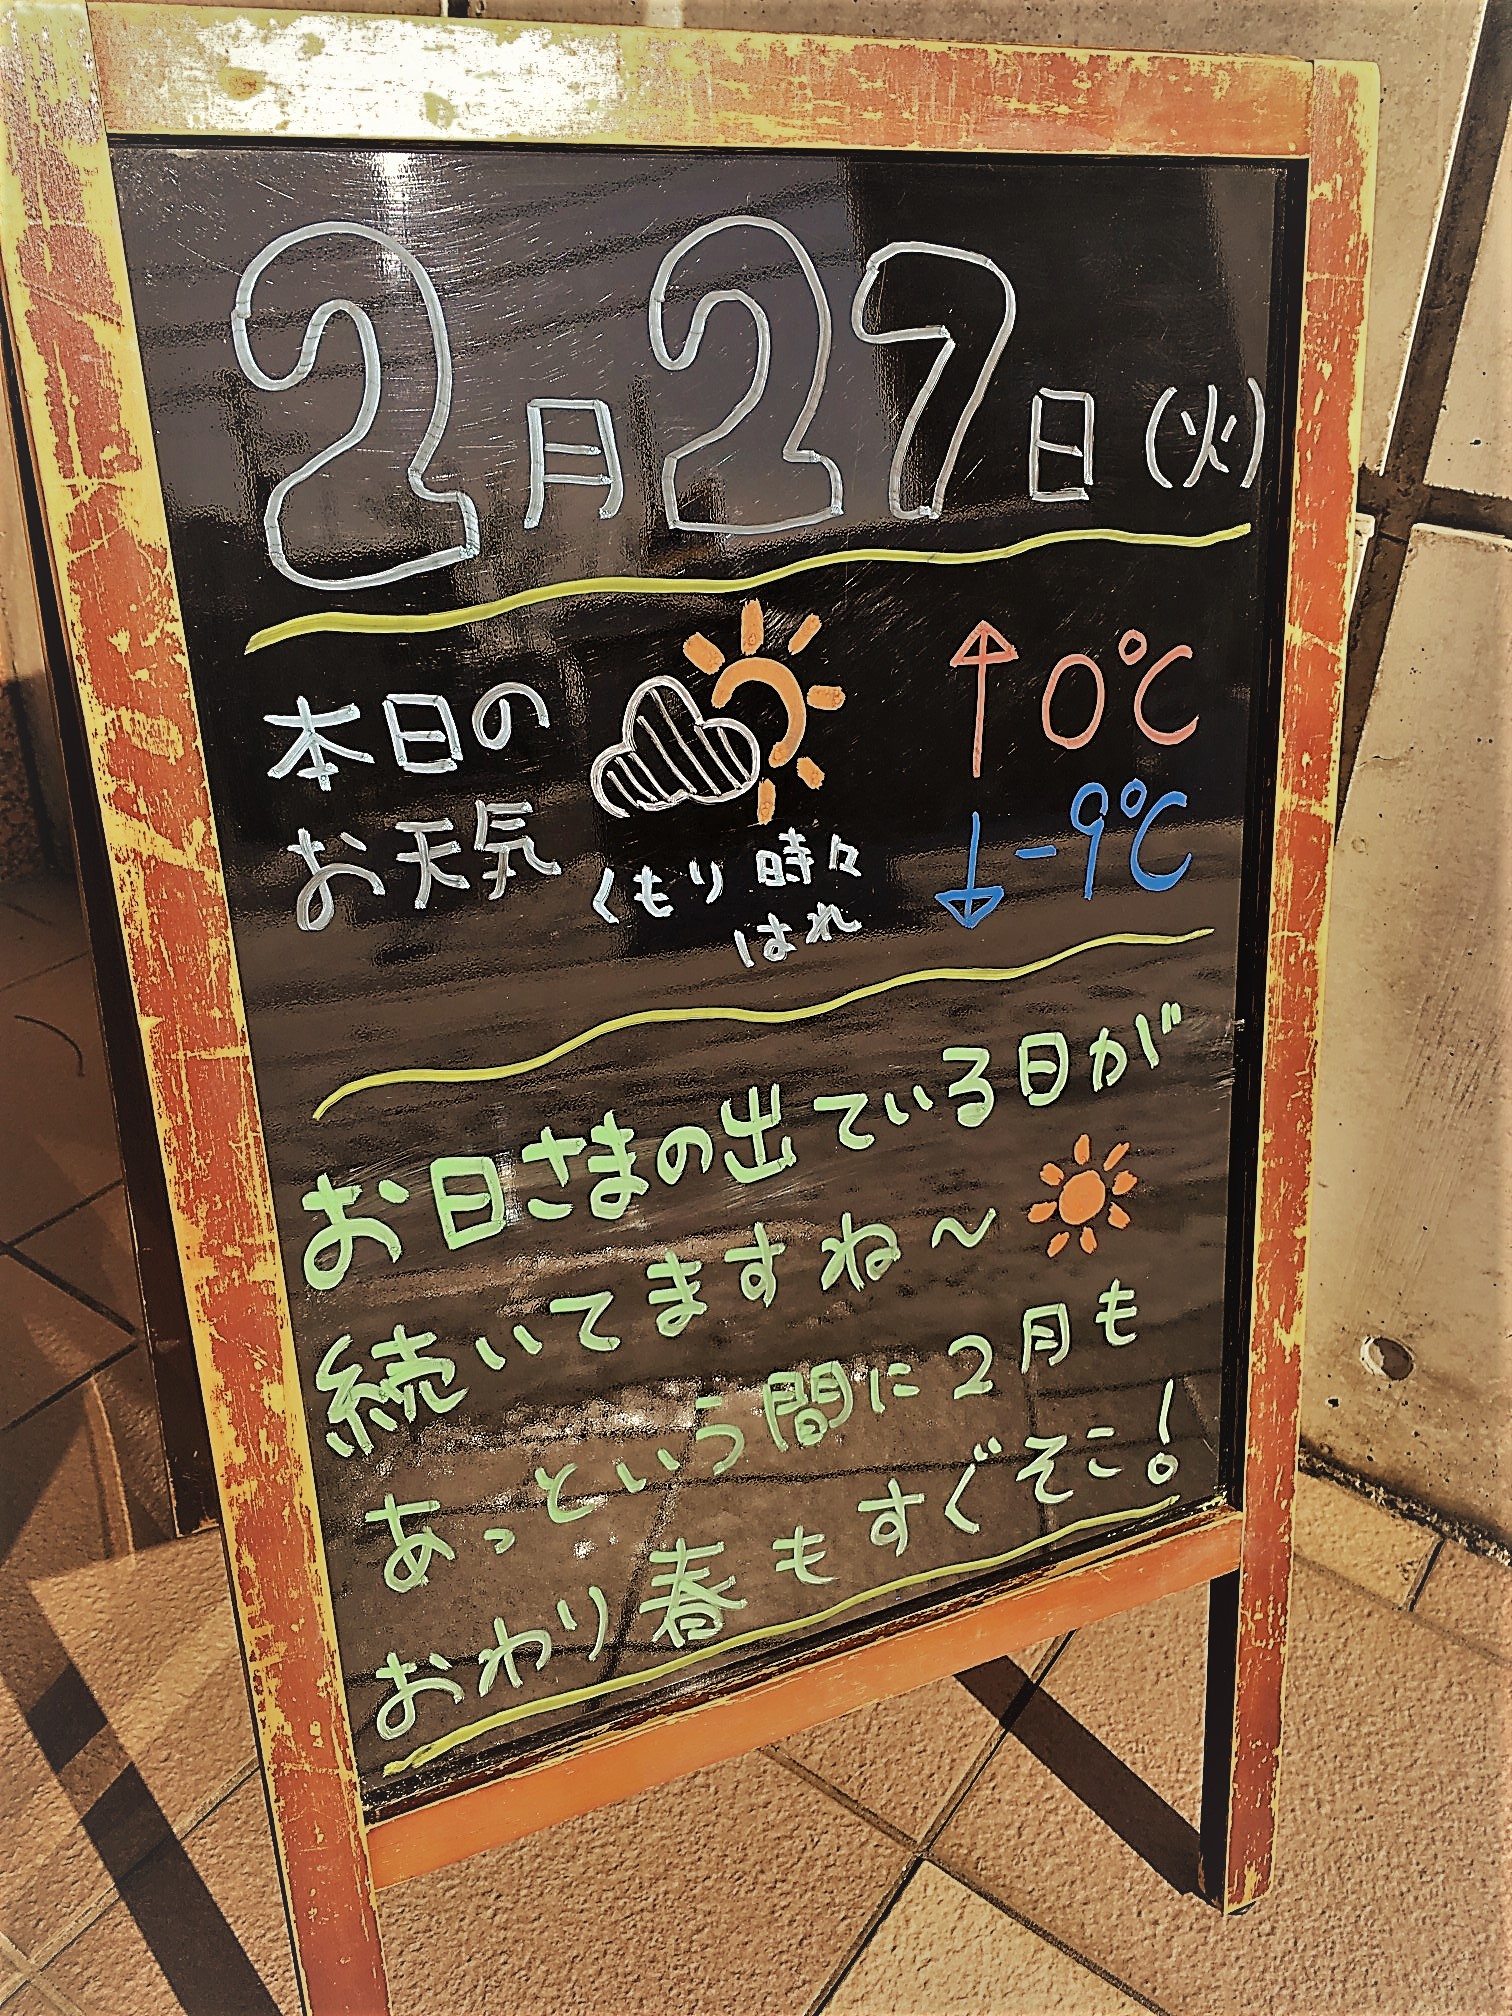 2月27日(火)
本日の
お天気
くもり時々
はれ
0℃
-9℃
お日さまの出ている日が
続いてますね～
あっという間に2月も
おわり春もすぐそこ!